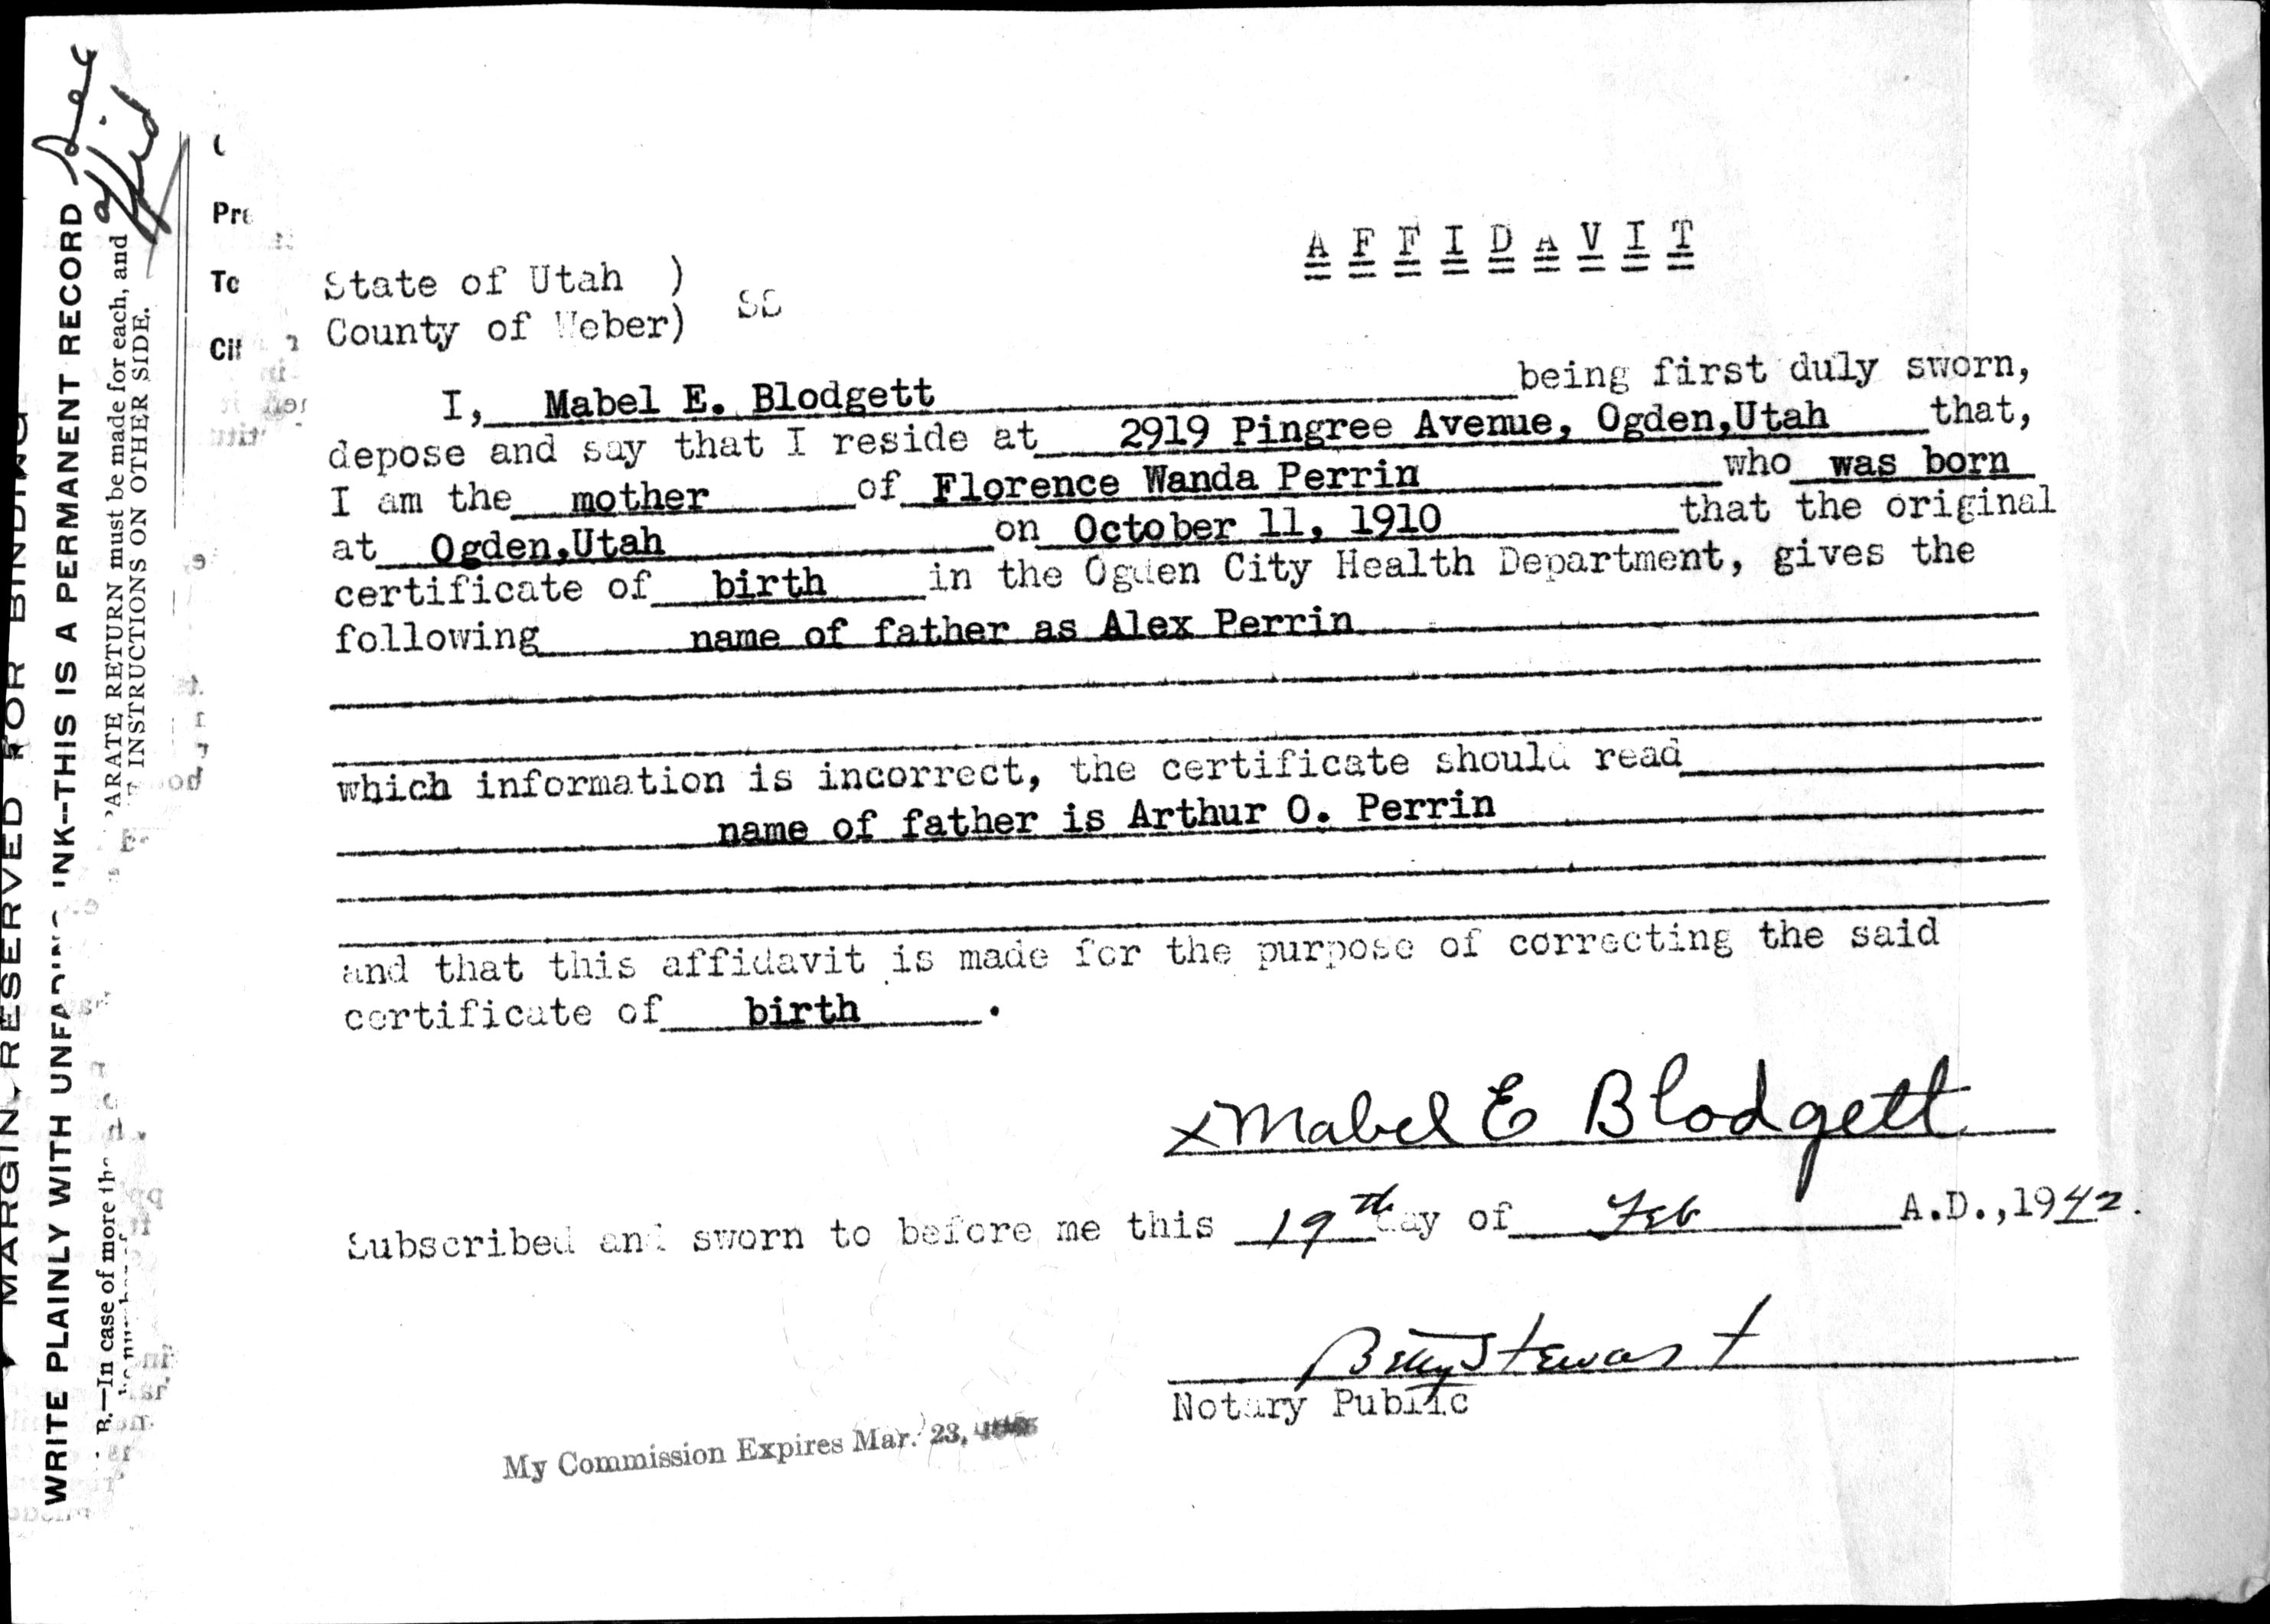 See
affid
MARGIN RESERVED FOR BINDING
WRITE PLAINLY WITH UNFADING INK--THIS IS A PERMANENT RECORD
B.—In case of more
ARATE RETURN must be made for each, and
INSTRUCTIONS ON OTHER SIDE.
A F F I D A V I T
State of Utah )
County of Weber) SS
I, Mabel E. Blodgett being first duly sworn,
depose and say that I reside at 2919 Pingree Avenue, Ogden,Utah that,
I am the mother of Florence Wanda Perrin who was born
at Ogden,Utah on October 11, 1910 that the original
certificate of birth in the Ogden City Health Department, gives the
following name of father as Alex Perrin
which information is incorrect, the certificate should read
name of father is Arthur O. Perrin
and that this affidavit is made for the purpose of correcting the said
certificate of birth .
x Mabel E Blodgett
Subscribed and sworn to before me this 19th day of Feb A.D.,1942.
Betty Stewart
Notary Public
My Commission Expires Mar. 23,